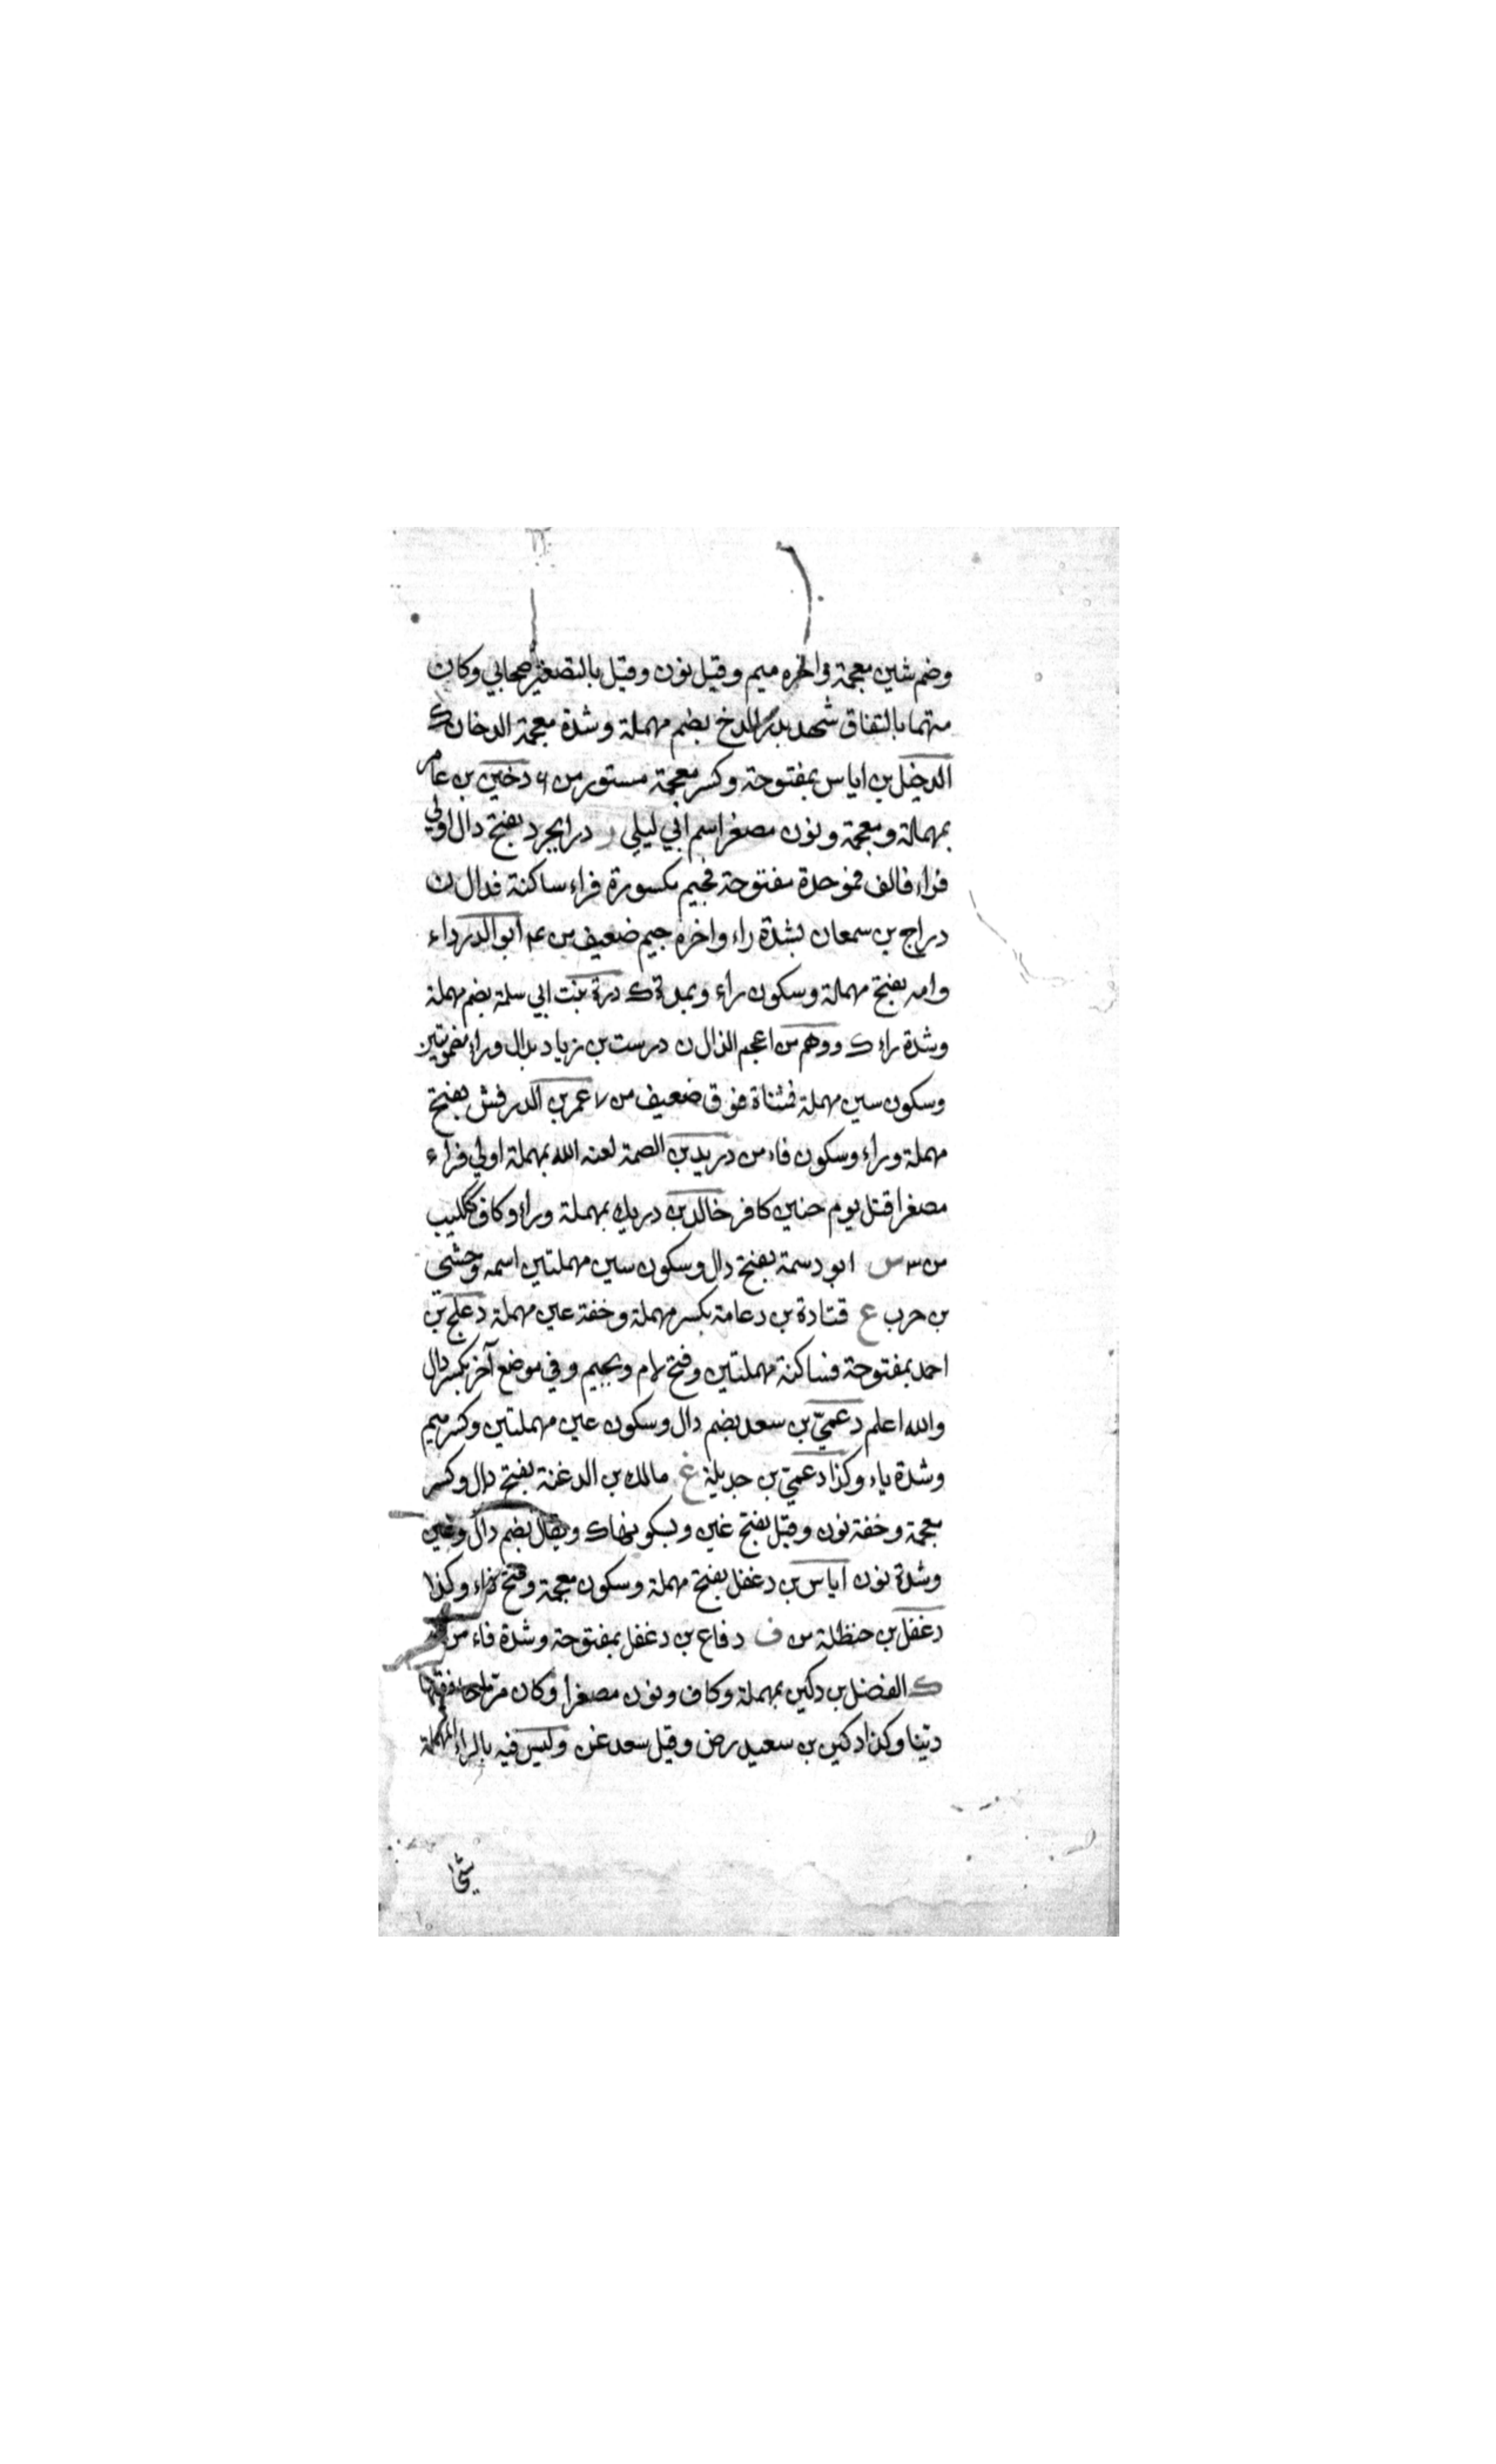 وضم شين معجمة واخره ميم وقيل نون وقيل بالتصغير صحابي وكان
متهما بالنفاق شهد بدرا الدخ بضم مهملة وشدة معجمة الدخان ك
الدخيل بن اياس بمفتوحة وكسر معجمة مستور من ٦ دخين بن عامر
بمهملة ومعجمة ونون مصغر اسم ابي ليلي درابجرد بفتح دال اولي
فراء فالف فموحدة مفتوحة فجيم مكسورة فراء ساكنة فدال ن
دراج بن سمعان بشدة راء واخره جيم ضعيف من ع ابو الدرداء
وامه بفتح مهملة وسكون راء وبمد ك درة بنت ابي سلمة بضم مهملة
وشدة راء ك ووهم من اعجم الذال ن درست بن زياد بدال وراء مضمومتين
وسكون سين مهملة فمثناة فوق ضعيف من ٧ عمر بن الدرفش بفتح
مهملة وراء وسكون فاء من دريد بن الصمة لعنه الله بمهملة اولي فراء
مصغرا قتل يوم حنين كافر خالد بن دريك بمهملة وراء وكاف ككليب
من ٣ س ابو دسمة بفتح دال وسكون سين مهملتين اسمه وحشي
بن حرب ع قتادة بن دعامة بكسر مهملة وخفة عين مهملة دعلج بن
احمد بمفتوحة فساكنة مهملتين وفتح لام وبجيم وفي موضع آخر بكسر دال
والله اعلم دعميّ بن سعد بضم دال وسكون عين مهملتين وكسر ميم
وشدة ياء وكذا دعميّ بن جديلة غ مالك بن الدغنة بفتح دال وكسر
معجمة وخفة نون وقيل بفتح غين وبسكونها ك ويقال بضم دال وغين
وشدة نون اياس بن دغفل بفتح مهملة وسكون معجمة وفتح فاء وكذا
دغفل بن حنظلة من ف دفاع بن دغفل بمفتوحة وشدة فاء من
ك الفضل بن دكين بمهملة وكاف ونون مصغرا وكان مزاحا
دينا وكذا دكين بن سعيد رض وقيل سعد غن وليس فيه بالراء المهملة
شئ